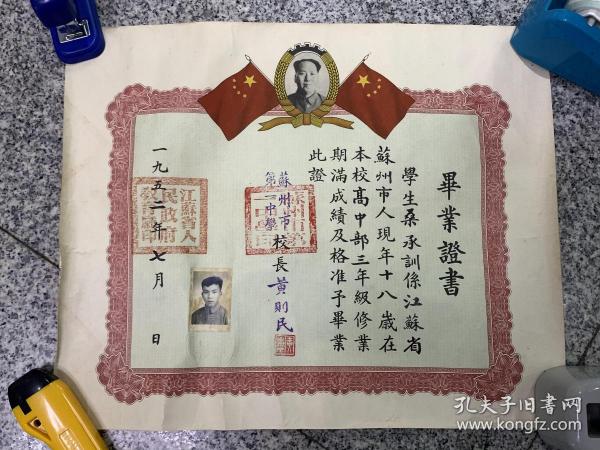 畢業證書
學生桑承訓係江蘇省
蘇州市人現年十八歲在
本校高中部三年級修業
期滿成績及格准予畢業
此證
蘇州市
第一中學
校長黃則民
一九五二年七月 日
孔夫子旧书网
kongfz.com